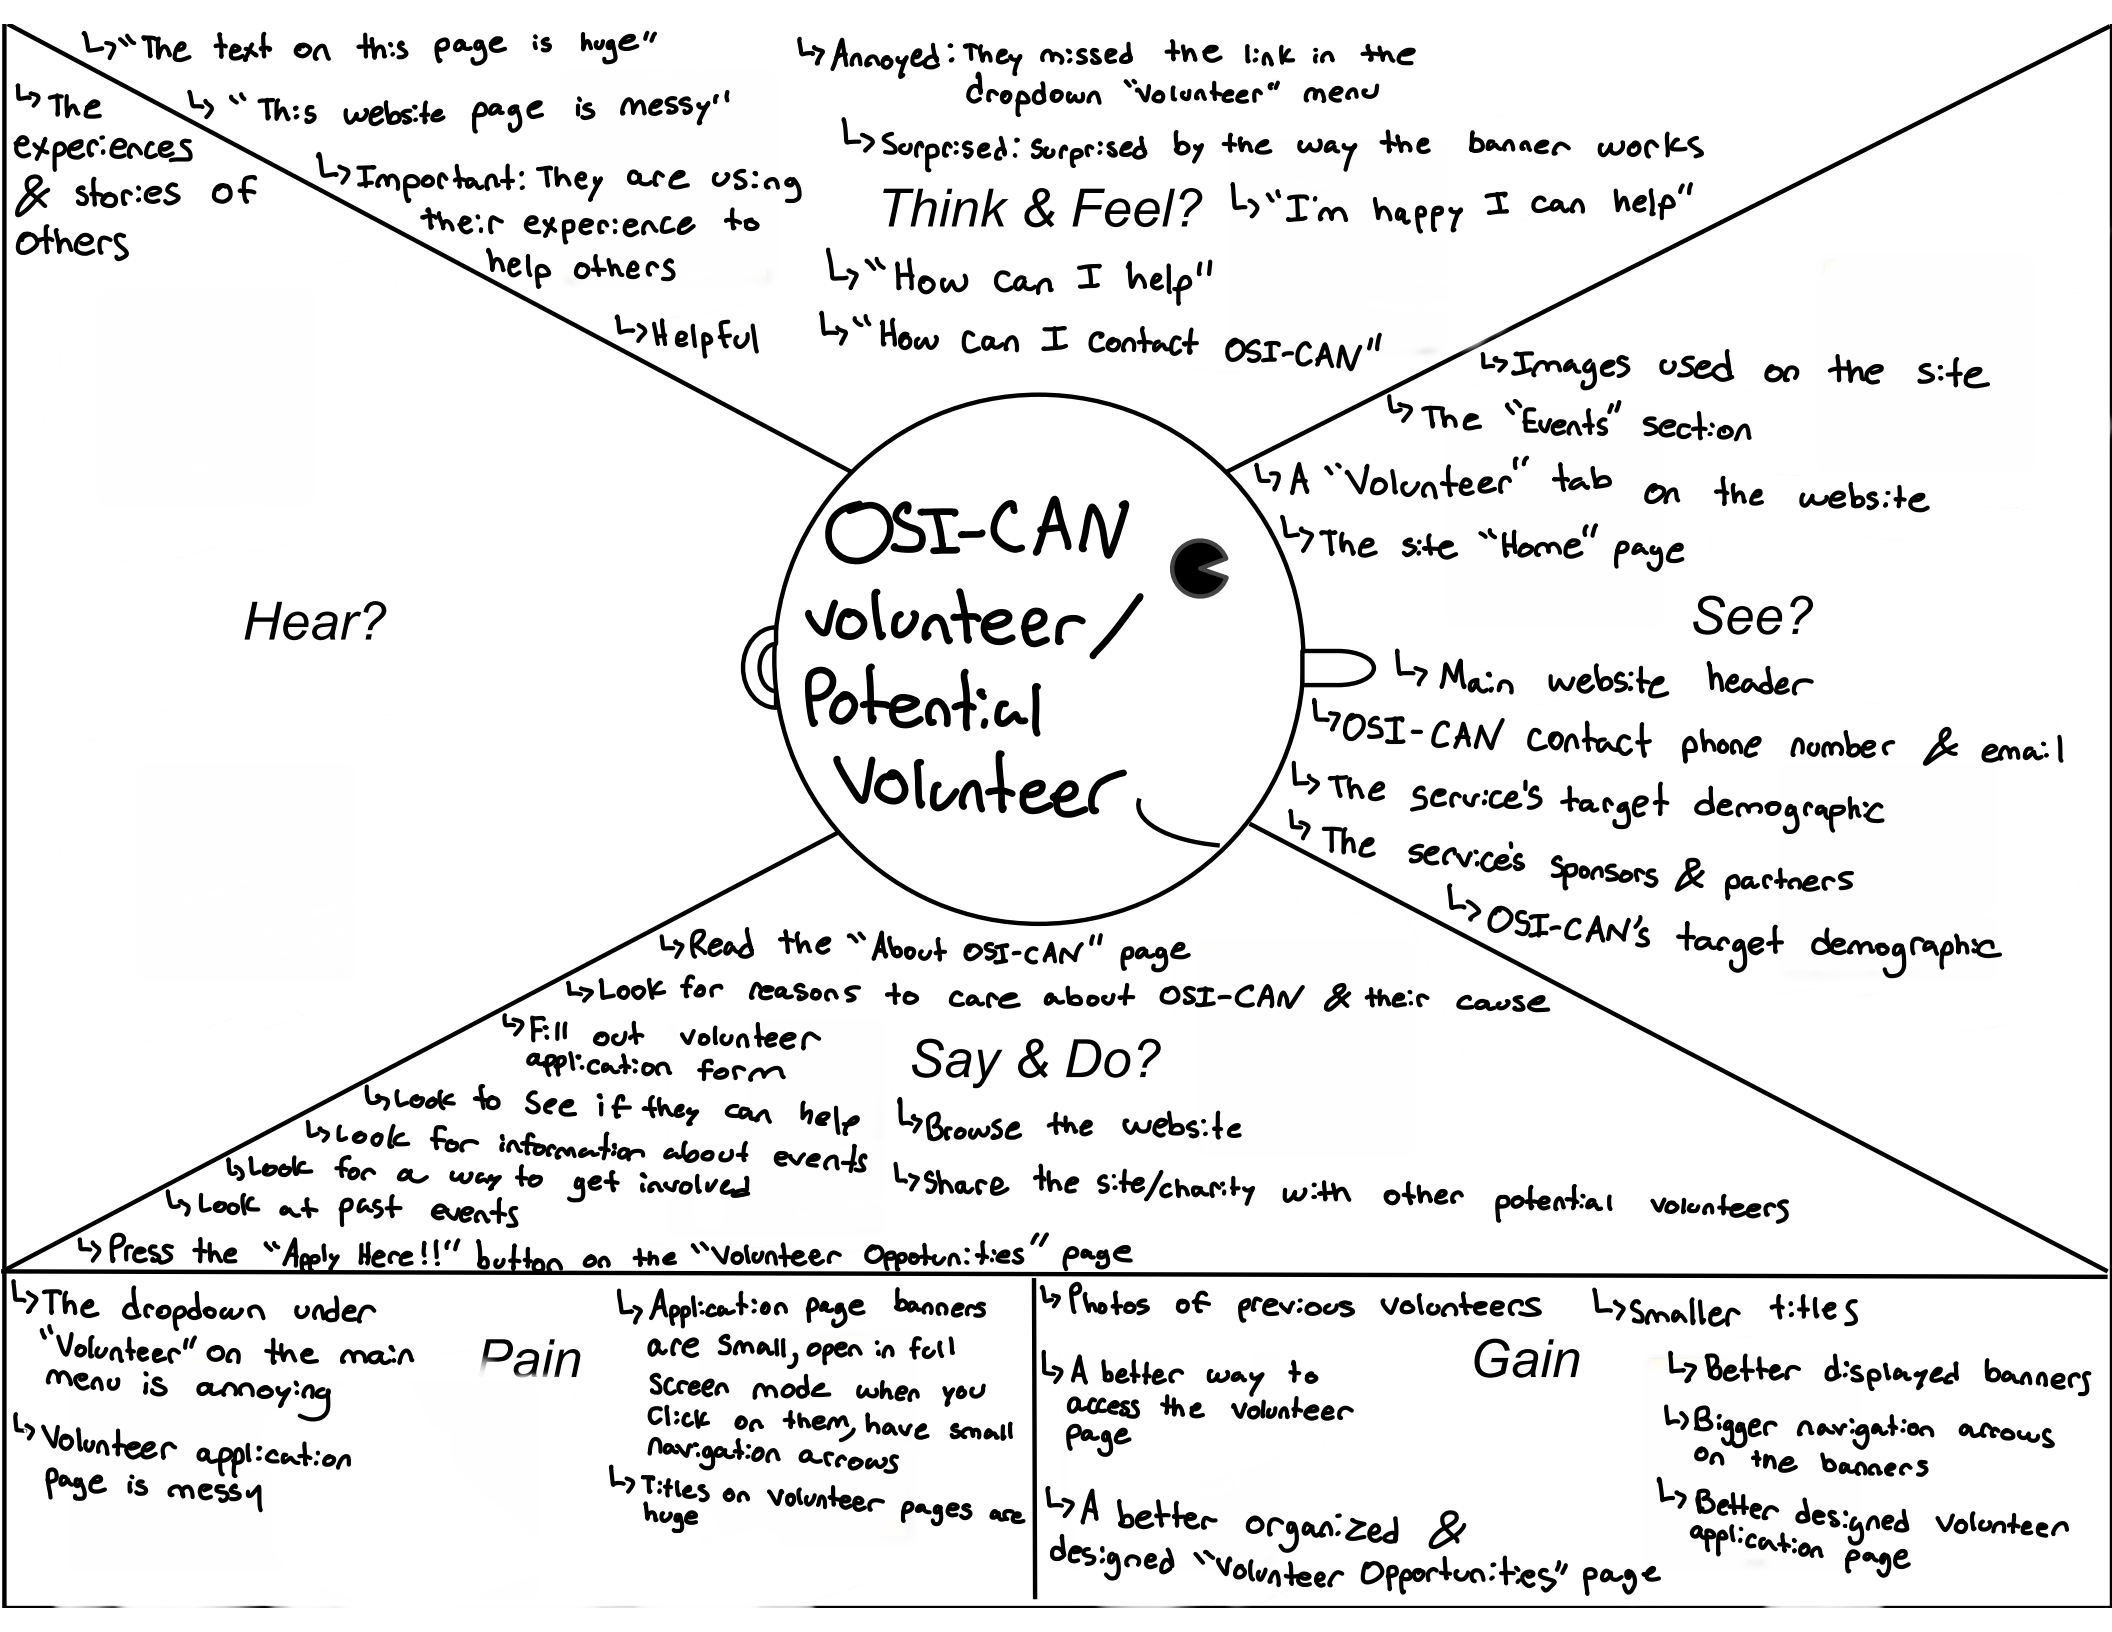 ↳"The text on this page is huge"
↳"This website page is messy"
↳Important: They are using
their experience to
help others
↳Helpful
↳Annoyed: They missed the link in the
dropdown "Volunteer" menu
↳Surprised: Surprised by the way the banner works
Think & Feel?
↳"I'm happy I can help"
↳"How can I help"
↳"How can I contact OSI-CAN"
↳The
experiences
& stories of
others
Hear?
OSI-CAN
volunteer/
Potential
Volunteer
↳Images used on the site
↳The "Events" section
↳A "Volunteer" tab on the website
↳The site "Home" page
See?
↳Main website header
↳OSI-CAN contact phone number & email
↳The service's target demographic
↳The service's sponsors & partners
↳OSI-CAN's target demographic
↳Read the "About OSI-CAN" page
↳Look for reasons to care about OSI-CAN & their cause
↳Fill out volunteer
application form
Say & Do?
↳Look to see if they can help
↳Look for information about events
↳Look for a way to get involved
↳Look at past events
↳Press the "Apply Here!!" button on the "Volunteer Oppotunities" page
↳Browse the website
↳Share the site/charity with other potential volunteers
↳The dropdown under
"Volunteer" on the main
menu is annoying
↳Volunteer application
page is messy
Pain
↳Application page banners
are small, open in full
screen mode when you
click on them, have small
navigation arrows
↳Titles on volunteer pages are
huge
↳Photos of previous volunteers
↳A better way to
access the volunteer
page
↳A better organized &
designed "Volunteer Opportunities" page
Gain
↳Smaller titles
↳Better displayed banners
↳Bigger navigation arrows
on the banners
↳Better designed volunteer
application page